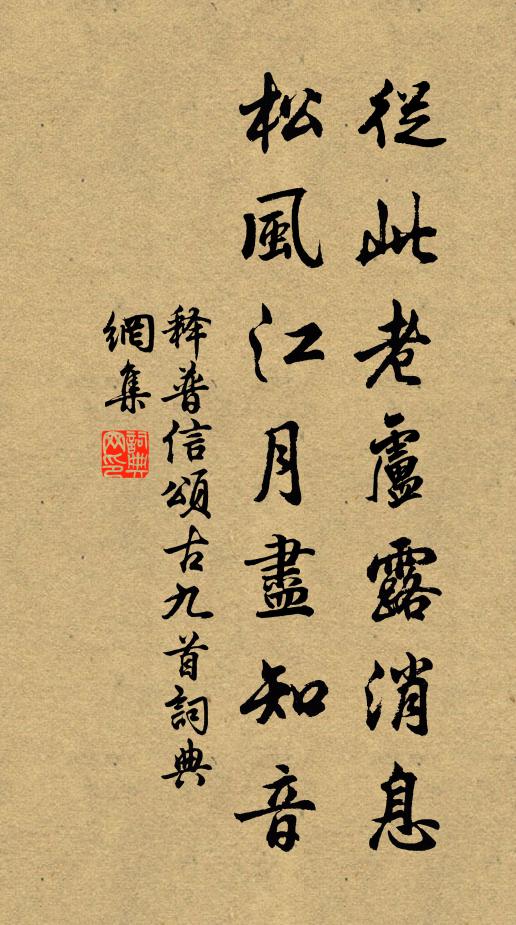 從此老盧露消息
松風江月盡知音
释普信頌古九首詞典
網集
詞典
网印